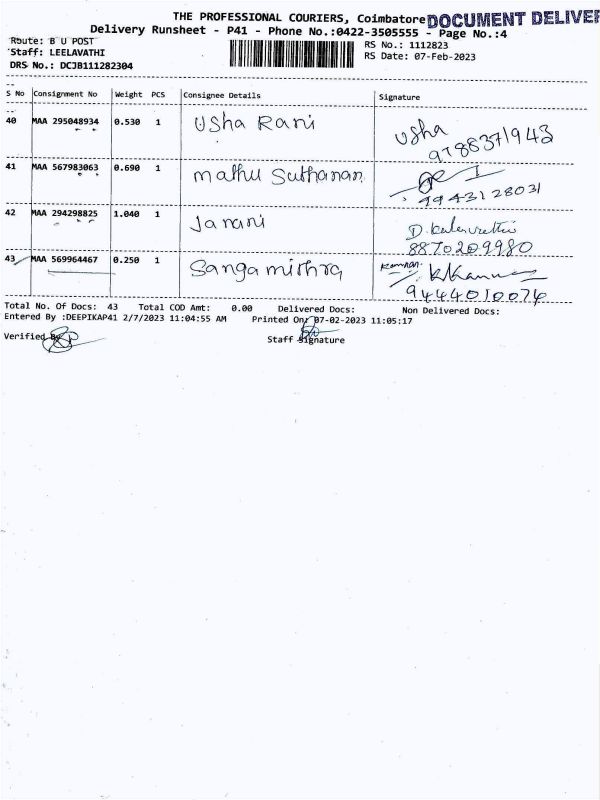 THE PROFESSIONAL COURIERS, Coimbatore DOCUMENT DELIVER
Delivery Runsheet - P41 - Phone No.:0422-3505555 - Page No.:4
Route: B U POST
Staff: LEELAVATHI
DRS No.: DCJB111282304
RS No.: 1112823
RS Date: 07-Feb-2023
S No Consignment No Weight PCS Consignee Details Signature
40 MAA 295048934 0.530 1 Usha Rani Usha
9788371943
41 MAA 567983063 0.690 1 Mathu Suthanan
9943128031
42 MAA 294298825 1.040 1 Janani
8870209980
43 MAA 569964467 0.250 1 Sangamithra Kannan
9444010074
Total No. Of Docs: 43 Total COD Amt: 0.00 Delivered Docs: Non Delivered Docs:
Entered By :DEEPIKAP41 2/7/2023 11:04:55 AM Printed On: 07-02-2023 11:05:17
Verified By
Staff Signature